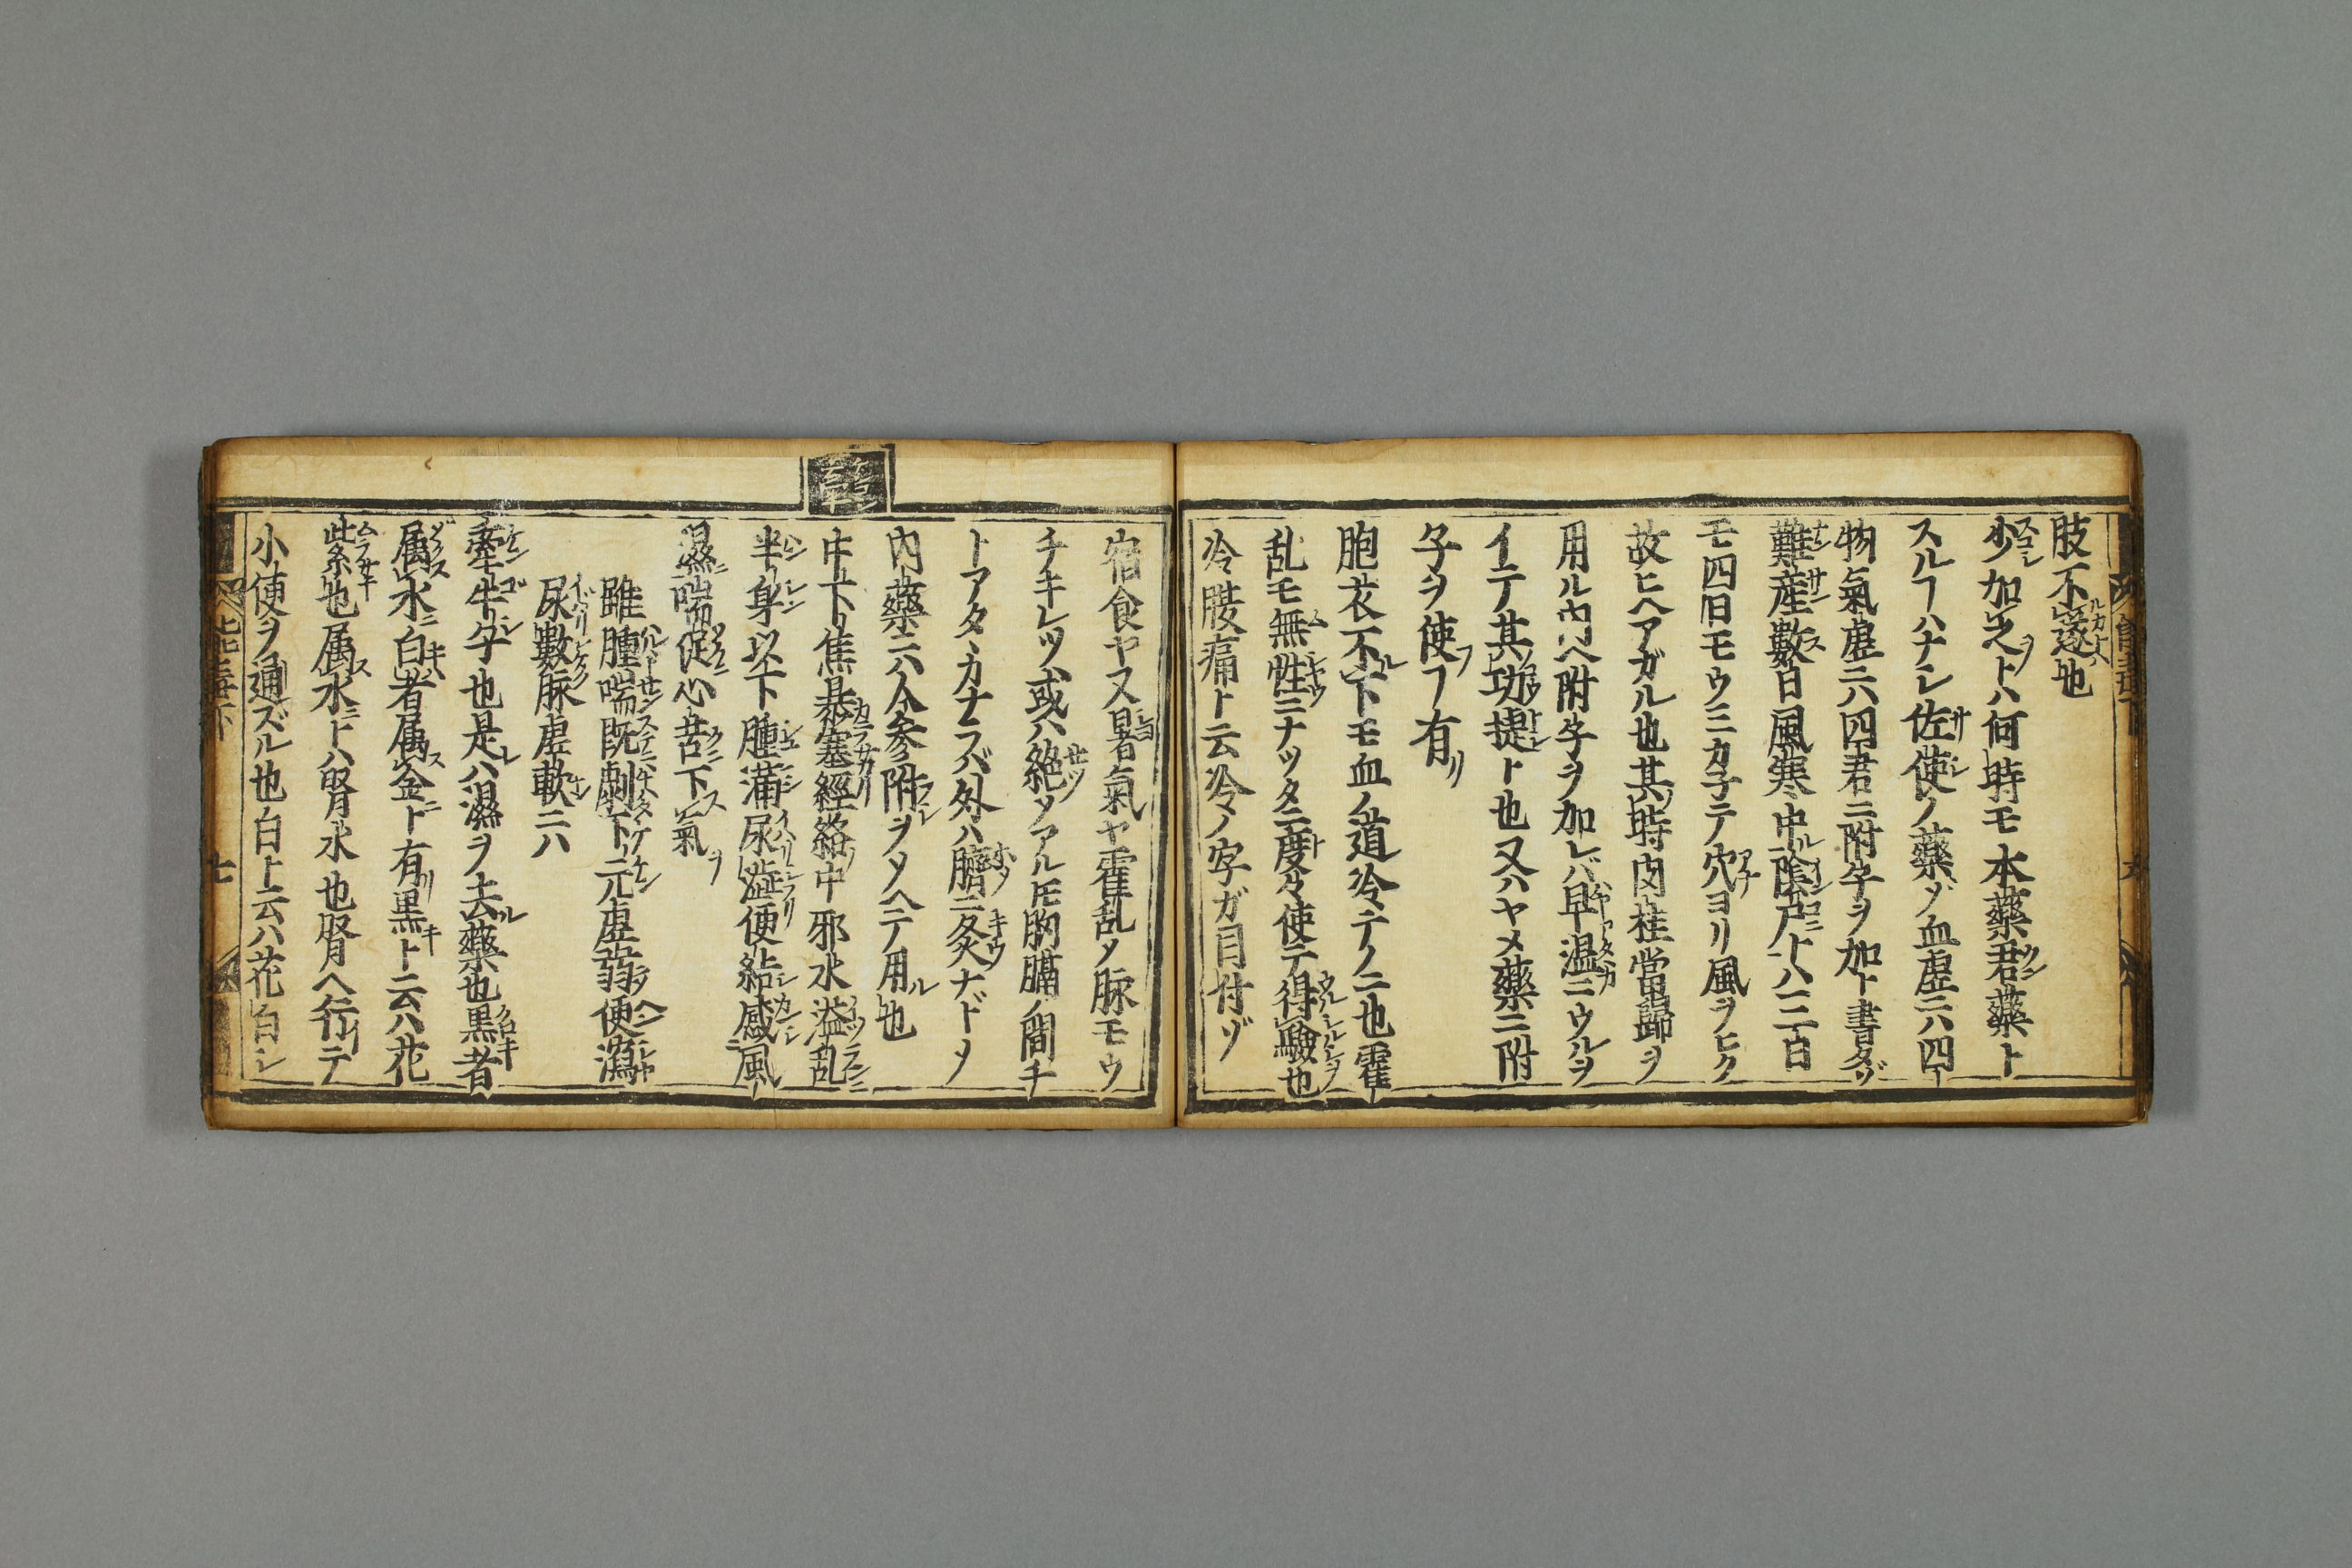 肢不遂也
少加之トハ何時モ本藥君藥ト
スルヿハナシ佐使ノ藥ゾ血虚ニハ四
物氣虚ニハ四君ニ附子ヲ加ト書タゾ
難産數日風寒中陰戸トハ三日
モ四日モウミカ子テ穴ヨリ風ヲヒク
故ヒヘアガル也其時肉桂當歸ヲ
用ル内ヘ附子ヲ加レバ早温ニウルヲ
イテ其功提ト也又ハヤメ藥ニ附
子ヲ使フヿ有
胞衣不下モ血ノ道冷テノ亊也霍
乱モ無性ニナツタニ度々使テ得驗也
冷腰痛ト云冷ノ字ガ目付ゾ
宿食ヤス暑氣ヤ霍乱メ脉モウ
チキレツ或ハ絶メアルモ胸膈ノ間チ
トアタヽカナラバ外ハ臍ニ灸ナドメ
内藥ニハ人参附ヲメヘテ用也
中下焦暴塞經絡中邪水溢乱
半身以下腫満尿澁便結感風
濕喘促心苦下氣
雖腫喘既劇下元虚弱便瀉
尿數脉虚軟ニハ
牽牛子也是ハ濕ヲ去藥也黒者
属水白者属金ト有黒ト云ハ花
紫也属水トハ腎水也腎ヘ行テ
小使ヲ通ズル也白ト云ハ花白シ
七